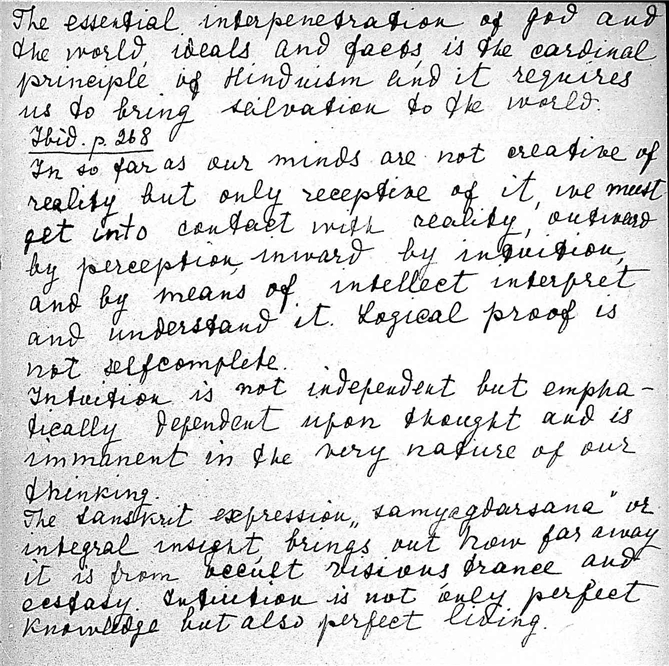 The essential interpenetration of god and
the world, ideals and facts is the cardinal
principle of Hinduism and it requires
us to bring salvation to the world.
Ibid. p. 268
In so far as our minds are not creative of
reality but only receptive of it, we must
get into contact with reality, outward
by perception, inward by intuition,
and by means of intellect interpret
and understand it. Logical proof is
not selfcomplete.
Intuition is not independent but empha-
tically dependent upon thought and is
immanent in the very nature of our
thinking.
The sanskrit expression „samyagdarsana" or
integral insight, brings out how far away
it is from occult visions trance and
ecstasy. Intuition is not only perfect
knowledge but also perfect living.